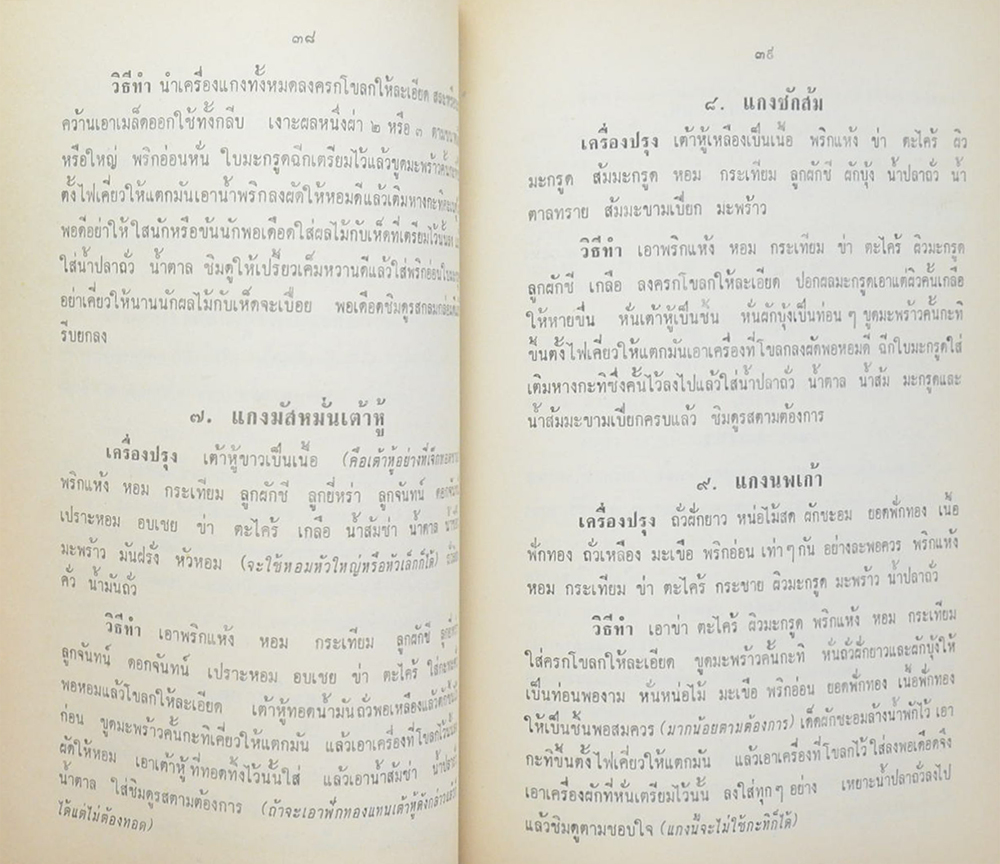 ๓๘
วิธีทำ นำเครื่องแกงทั้งหมดลงครกโขลกให้ละเอียด
คว้านเอาเมล็ดออกใช้ทั้งกลีบ เงาะผลหนึ่งผ่า ๒ หรือ ๓
หรือใหญ่ พริกอ่อนหั่น ใบมะกรูดฉีกเตรียมไว้แล้วขูดมะพร้าวคั้น
ตั้งไฟเคี่ยวให้แตกมันเอาน้ำพริกลงผัดให้หอมดีแล้วเติมหางกะทิ
พอดีอย่าให้ใสนักหรือข้นนักพอเดือดใส่ผลไม้กับเห็ดที่เตรียมไว้นั้นลง
ใส่น้ำปลาถั่ว น้ำตาล ชิมดูให้เปรี้ยวเค็มหวานดีแล้วใส่พริกอ่อนใบมะกรูด
อย่าเคี่ยวให้นานนักผลไม้กับเห็ดจะเปื่อย พอเดือดชิมดูรสกลมกล่อม
รีบยกลง
๗. แกงมัสหมั่นเต้าหู้
เครื่องปรุง เต้าหู้ขาวเป็นเนื้อ (คือเต้าหู้อย่างที่เจ๊กทอด
พริกแห้ง หอม กระเทียม ลูกผักชี ลูกยี่หร่า ลูกจันทน์ ดอกจันทน์
เปราะหอม อบเชย ข่า ตะไคร้ เกลือ น้ำส้มซ่า น้ำตาล
มะพร้าว มันฝรั่ง หัวหอม (จะใช้หอมหัวใหญ่หรือหัวเล็กก็ได้)
คั่ว น้ำมันถั่ว
วิธีทำ เอาพริกแห้ง หอม กระเทียม ลูกผักชี
ลูกจันทน์ ดอกจันทน์ เปราะหอม อบเชย ข่า ตะไคร้
พอหอมแล้วโขลกให้ละเอียด เต้าหู้ทอดน้ำมันถั่วพอเหลืองแล้วตักขึ้น
ก่อน ขูดมะพร้าวคั้นกะทิเคี่ยวให้แตกมัน แล้วเอาเครื่องที่โขลกไว้นั้น
ผัดให้หอม เอาเต้าหู้ที่ทอดทั้งไว้นั้นใส่ แล้วเอาน้ำส้มซ่า น้ำปลา
น้ำตาล ใส่ชิมดูรสตามต้องการ (ถ้าจะเอาฟักทองแทนเต้าหู้ดังกล่าว
ได้แต่ไม่ต้องทอด)
๓๙
๘. แกงชักส้ม
เครื่องปรุง เต้าหู้เหลืองเป็นเนื้อ พริกแห้ง ข่า ตะไคร้ ผิว
มะกรูด ส้มมะกรูด หอม กระเทียม ลูกผักชี ผักบุ้ง น้ำปลาถั่ว น้ำ
ตาลทราย ส้มมะขามเปียก มะพร้าว
วิธีทำ เอาพริกแห้ง หอม กระเทียม ข่า ตะไคร้ ผิวมะกรูด
ลูกผักชี เกลือ ลงครกโขลกให้ละเอียด ปอกผลมะกรูดเอาแต่ผิวคั้นเกลือ
ให้หายขื่น หั่นเต้าหู้เป็นชิ้น หั่นผักบุ้งเป็นท่อนๆ ขูดมะพร้าวคั้นกะทิ
ข้นตั้งไฟเคี่ยวให้แตกมันเอาเครื่องที่โขลกลงผัดพอหอมดี ฉีกใบมะกรูดใส่
เติมหางกะทิซึ่งคั้นไว้ลงไปแล้วใส่น้ำปลาถั่ว น้ำตาล น้ำส้ม มะกรูดและ
น้ำส้มมะขามเปียกครบแล้ว ชิมดูรสตามต้องการ
๙. แกงนพเก้า
เครื่องปรุง ถั่วฝักยาว หน่อไม้สด ผักชะอม ยอดฟักทอง เนื้อ
ฟักทอง ถั่วเหลือง มะเขือ พริกอ่อน เท่าๆกัน อย่างละพอควร พริกแห้ง
หอม กระเทียม ข่า ตะไคร้ กระชาย ผิวมะกรูด มะพร้าว น้ำปลาถั่ว
วิธีทำ เอาข่า ตะไคร้ ผิวมะกรูด พริกแห้ง หอม กระเทียม
ใส่ครกโขลกให้ละเอียด ขูดมะพร้าวคั้นกะทิ หั่นถั่วฝักยาวและผักบุ้งให้
เป็นท่อนพองาม หั่นหน่อไม้ มะเขือ พริกอ่อน ยอดฟักทอง เนื้อฟักทอง
ให้เป็นชิ้นพอสมควร (มากน้อยตามต้องการ) เด็ดผักชะอมล้างน้ำพักไว้ เอา
กะทิขึ้นตั้งไฟเคี่ยวให้แตกมัน แล้วเอาเครื่องที่โขลกไว้ใส่ลงพอเดือดจึง
เอาเครื่องผักที่หั่นเตรียมไว้นั้น ลงใส่ทุกๆอย่าง เหยาะน้ำปลาถั่วลงไป
แล้วชิมดูตามชอบใจ (แกงนี้จะไม่ใช้กะทิก็ได้)